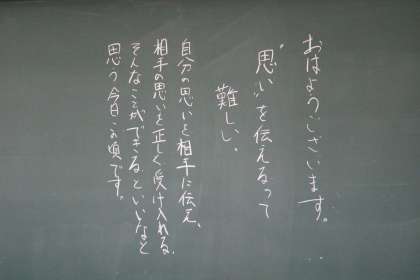 おはようございます。
"思い"を伝えるって
難しい。
自分の思いを相手に伝え、
相手の思いを正しく受け入れる。
そんなことができるといいなと
思う今日この頃です。